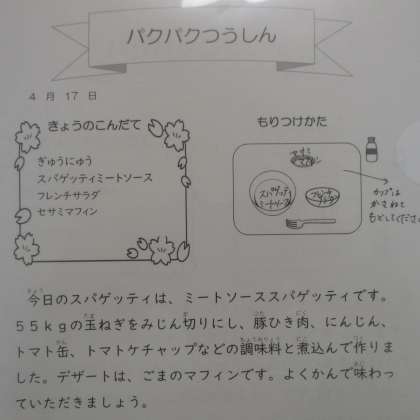 パクパクつうしん
4 月 17 日
きょうのこんだて
ぎゅうにゅう
スパゲッティミートソース
フレンチサラダ
セサミマフィン
もりつけかた
セサミ
マフィン
スパゲッティ
ミートソース
フレンチ
サラダ
カップは
かさねて
もどしてくださ
今日のスパゲッティは、ミートソーススパゲッティです。
55kgの玉ねぎをみじん切りにし、豚ひき肉、にんじん、
トマト缶、トマトケチャップなどの調味料と煮込んで作りま
した。デザートは、ごまのマフィンです。よくかんで味わっ
ていただきましょう。